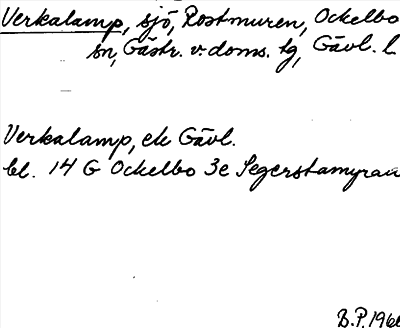 Verkalamp, sjö, Rostmuren, Ockelbo
sn, Gästr. v. doms. tg, Gävl. l
Verkalamp, ek Gävl.
bl. 14 G Ockelbo 3e Segerstamyran
B.P. 1966